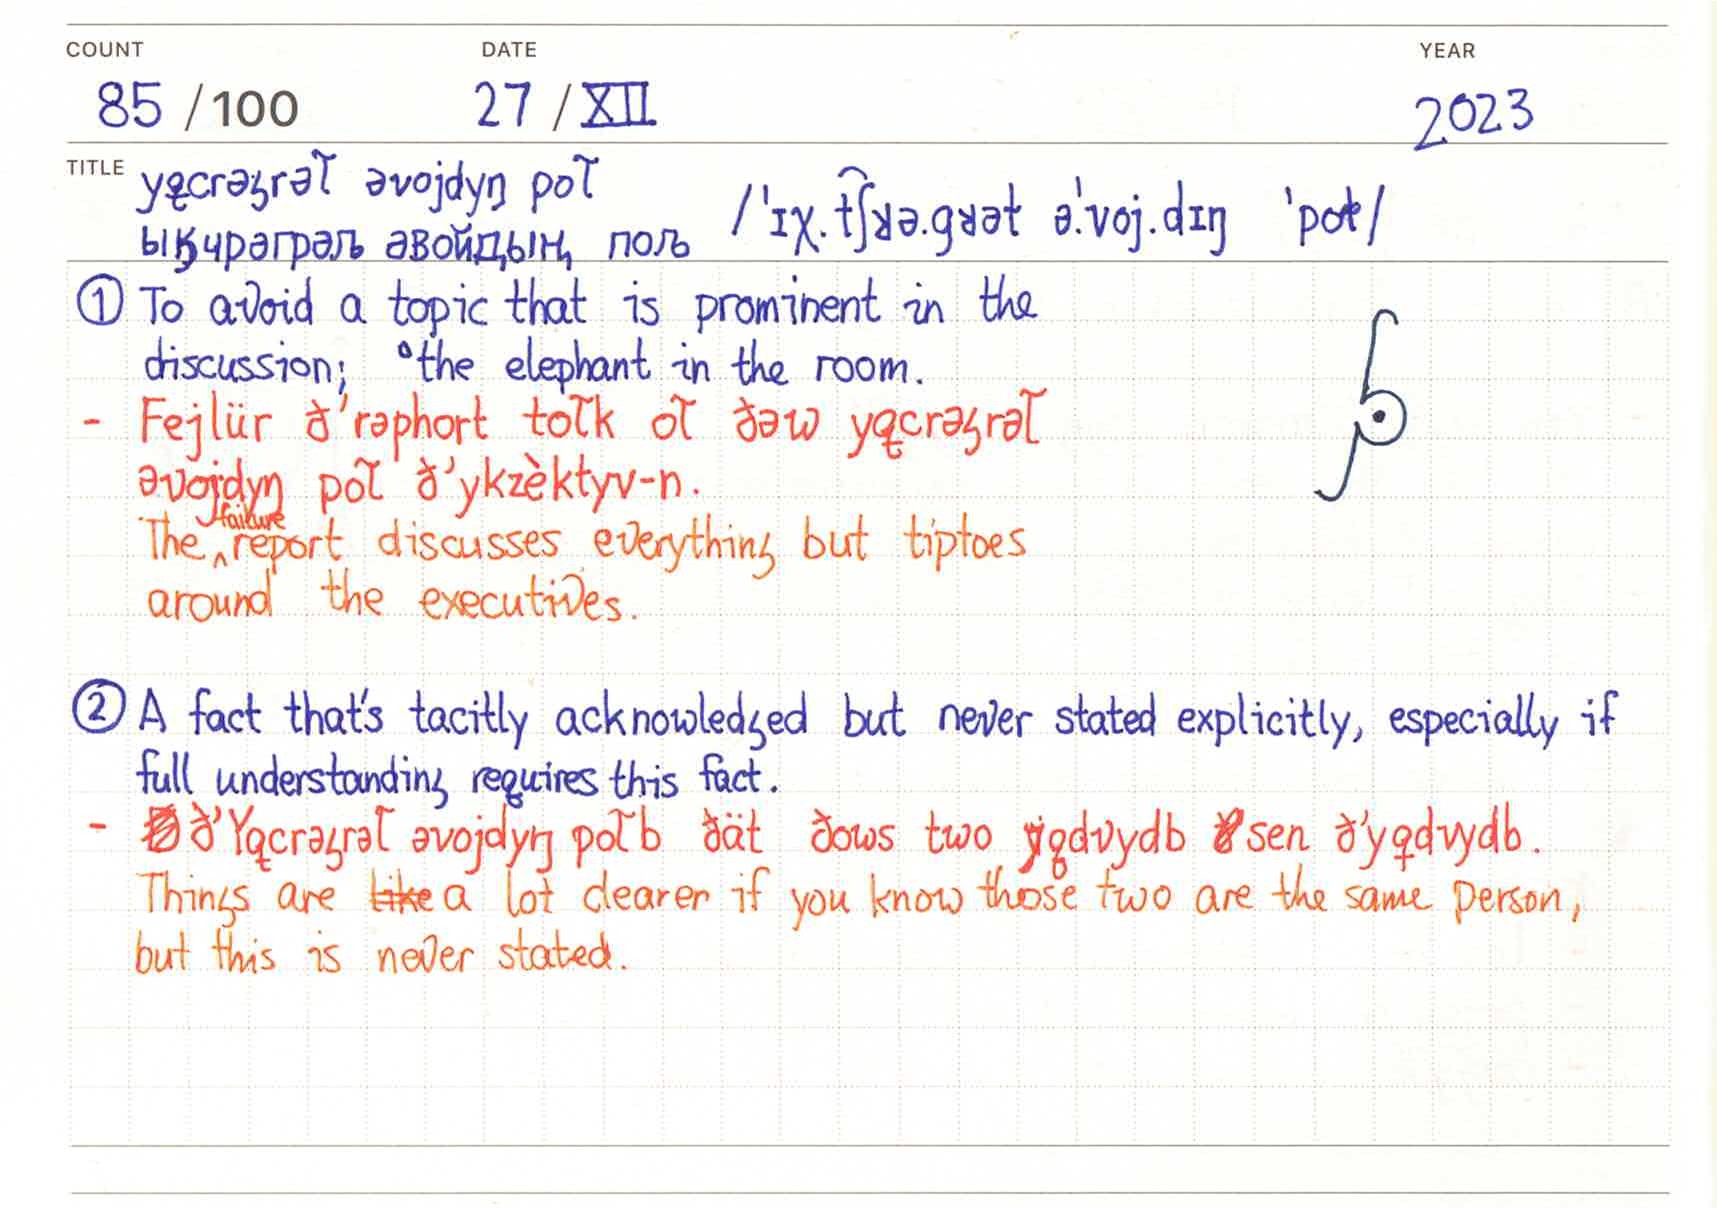 COUNT DATE YEAR
85 /100 27 / XII 2023
TITLE yqcrəȝrəl̃ əvojdyŋ pol̃ /ˈɪχ.t͡ʃʁə.gʁəɫ ə.ˈvoj.dɪŋ ˈpoɫ/
ыӄчрәгрәљ әвойдың пољ
① To avoid a topic that is prominent in the
discussion; °the elephant in the room.
- Fejlür ð'rəphort tol̃k ol̃ ðəw yqcrəȝrəl̃
əvojdyŋ pol̃ ð'ykzèktyv-n.
The failure report discusses everything but tiptoes
around the executives.
② A fact that's tacitly acknowledged but never stated explicitly, especially if
full understanding requires this fact.
- ð'Yqcrəȝrəl̃ əvojdyŋ pol̃b ðät ðows two yqdvydb sen ð'yqdvydb.
Things are like a lot clearer if you know those two are the same person,
but this is never stated.